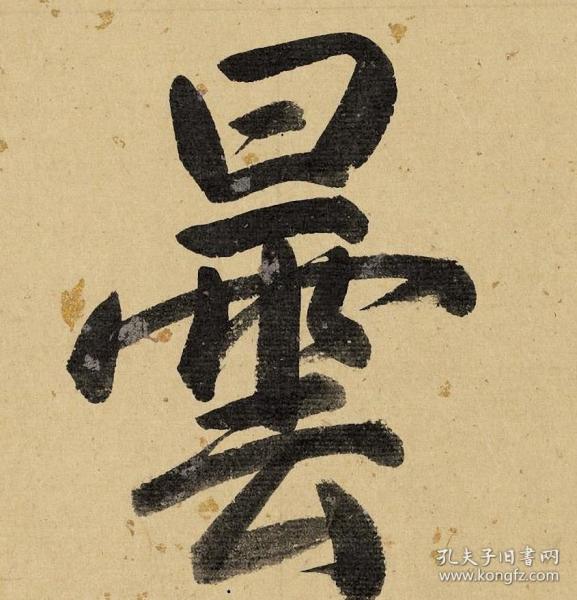 曇
孔夫子旧書网
www.kongfz.com